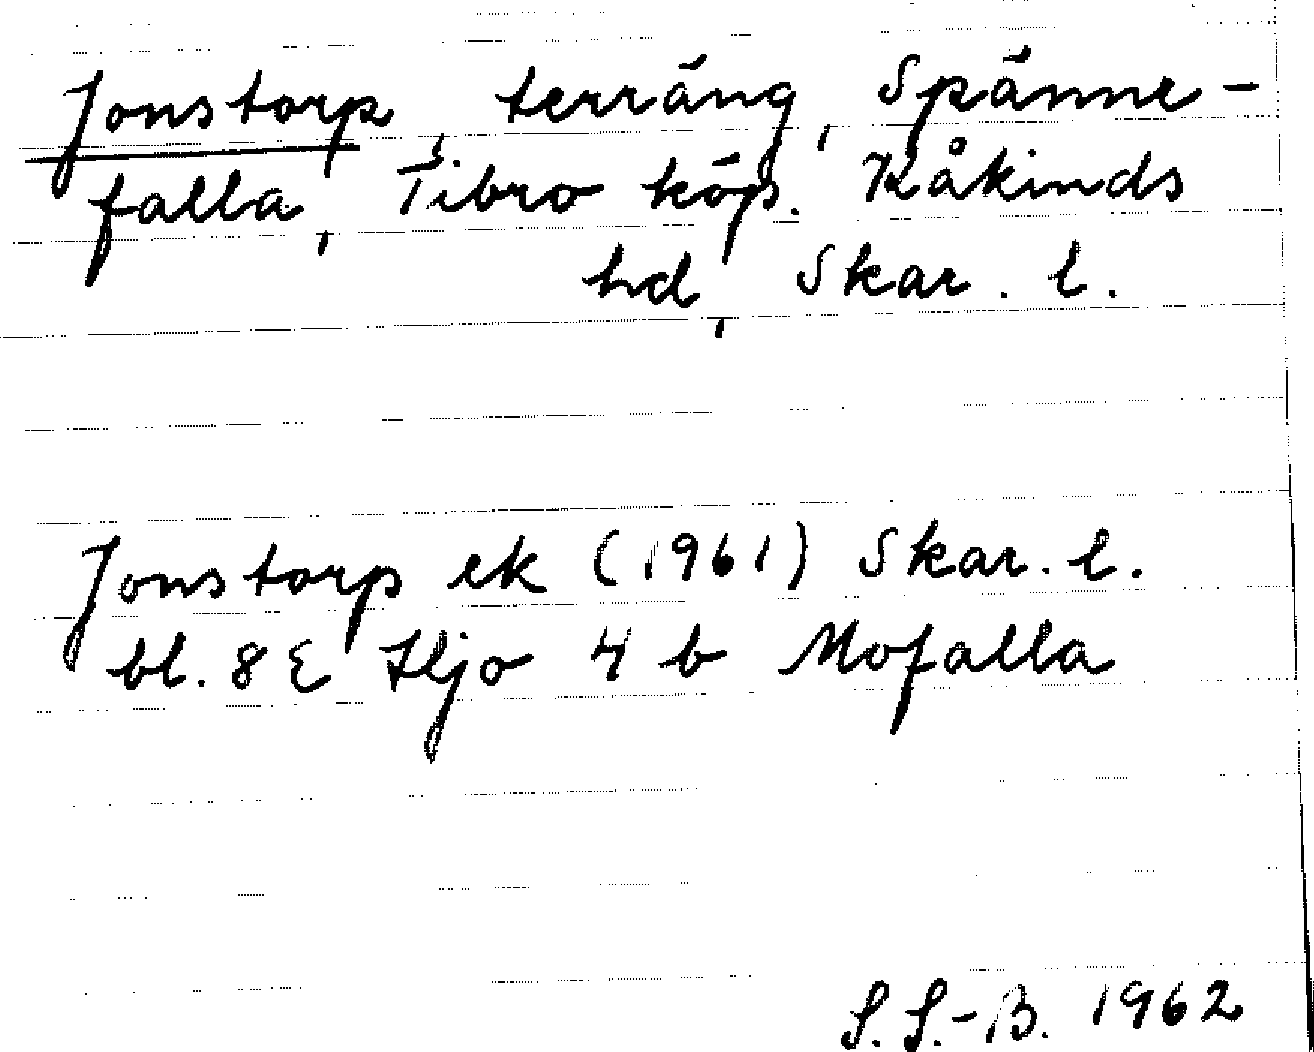 Jonstorp, terräng, Spänne-
falla, Tibro köp. Kåkinds
hd, Skar. l.
Jonstorp ek (1961) Skar. l.
bl. 8E Hjo 4 b Mofalla
S. S.-B. 1962